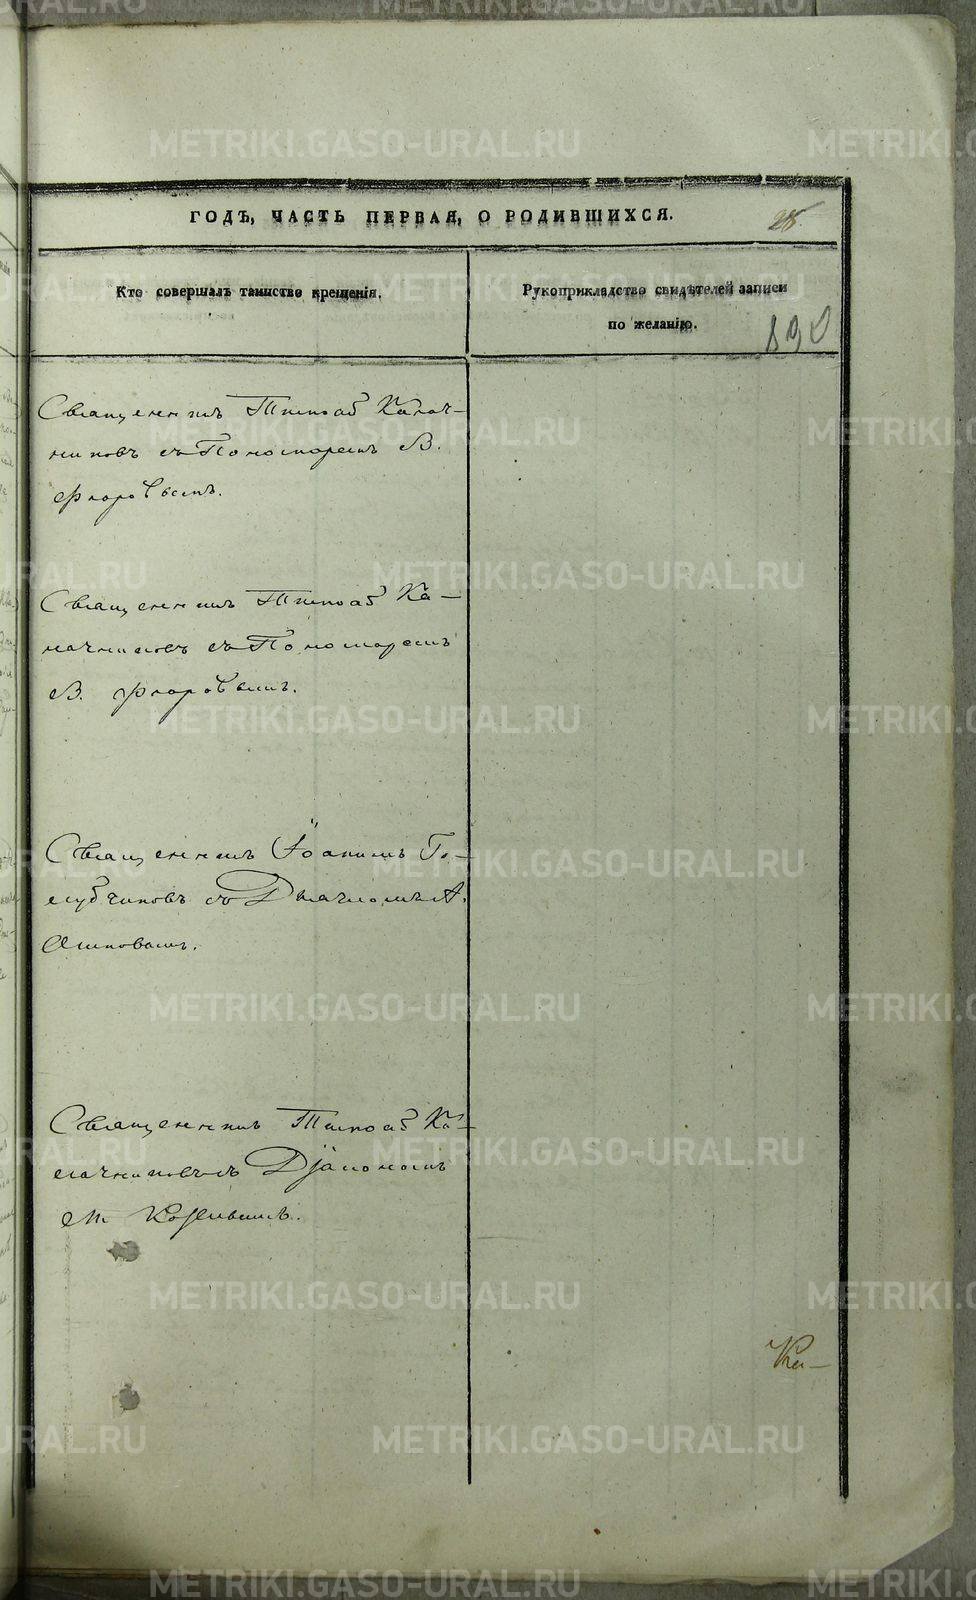 ГОДЪ, ЧАСТЬ ПЕРВАЯ, О РОДИВШИХСЯ.
28.
Кто совершалъ таинство крещенія.
Рукоприкладство свидѣтелей записи
по желанію.
190
Священникъ Тимоѳ Калач-
никовъ съ Пономаремъ В.
Флоровымъ.
Священникъ Тимоѳ Ка-
лачниковъ съ Пономаремъ
В. Флоровымъ.
Священникъ Іоакимъ Го-
лубчиковъ съ Дьячкомъ А.
Осиповымъ.
Священникъ Тимоѳ Ка-
лачниковъ съ Діакономъ
М.
METRIKI.GASO-URAL.RU